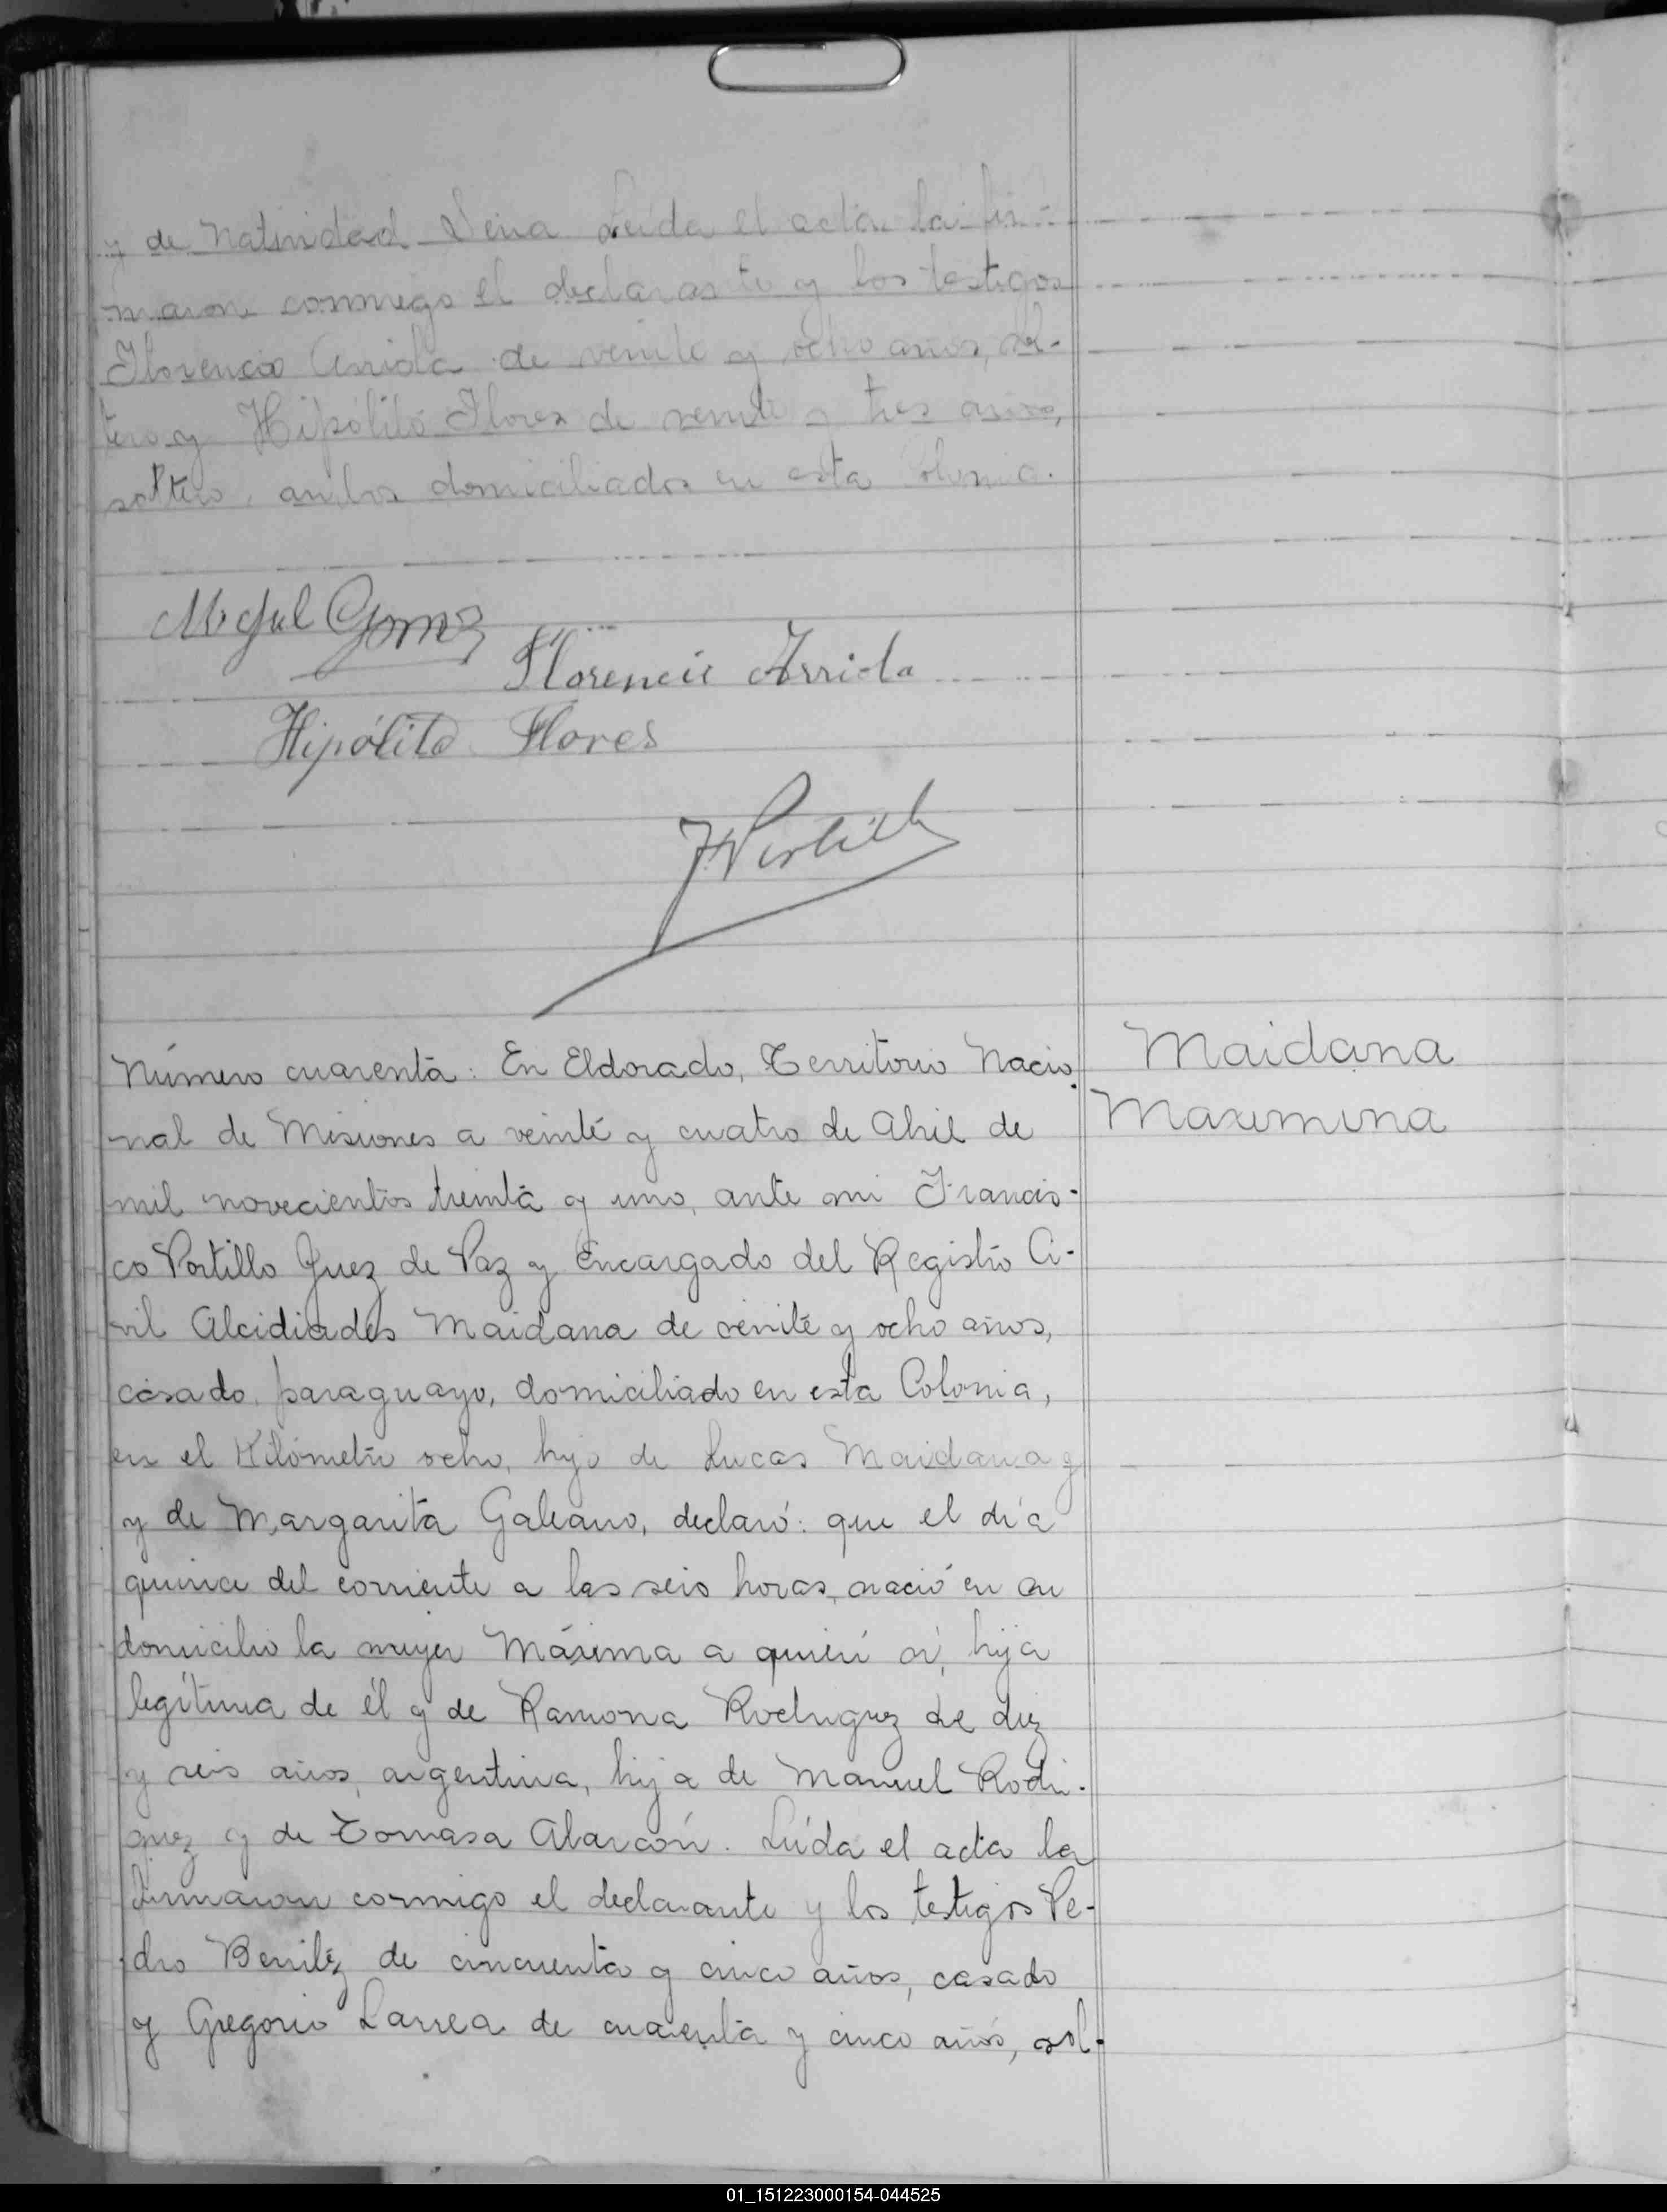 y de Natividad Leiva Leída el acta la fir-
maron conmigo el declarante y los testigos
Florencio Arriola de veinte y ocho años, sol-
tero y Hipólito Flores de veinte y tres años,
soltero, ambos domiciliados en esta Colonia.
Miguel Gomez
Florencio Arriola
Hipólito Flores
FPortillo
Número cuarenta: En Eldorado, Territorio Nacio-
nal de Misiones a veinte y cuatro de Abril de
mil novecientos treinta y uno, ante mi Francis-
co Portillo Juez de Paz y Encargado del Registro Ci-
vil Alcidiades Maidana de veinte y ocho años,
casado, paraguayo, domiciliado en esta Colonia,
en el Kilómetro ocho, hijo de Lucas Maidana y
y de Margarita Galeano, declaró: que el día
quince del corriente a las seis horas, nació en su
domicilio la mujer Máxima a quien ví, hija
legítima de él y de Ramona Rodriguez de diez
y seis años, argentina, hija de Manuel Rodri-
guez y de Tomasa Alarcón. Leída el acta la
firmaron conmigo el declarante y los testigos Pe-
dro Benitez de cincuenta y cinco años, casado
y Gregorio Larrea de cuarenta y cinco años, sol-
Maidana
Maximina
01_151223000154-044525